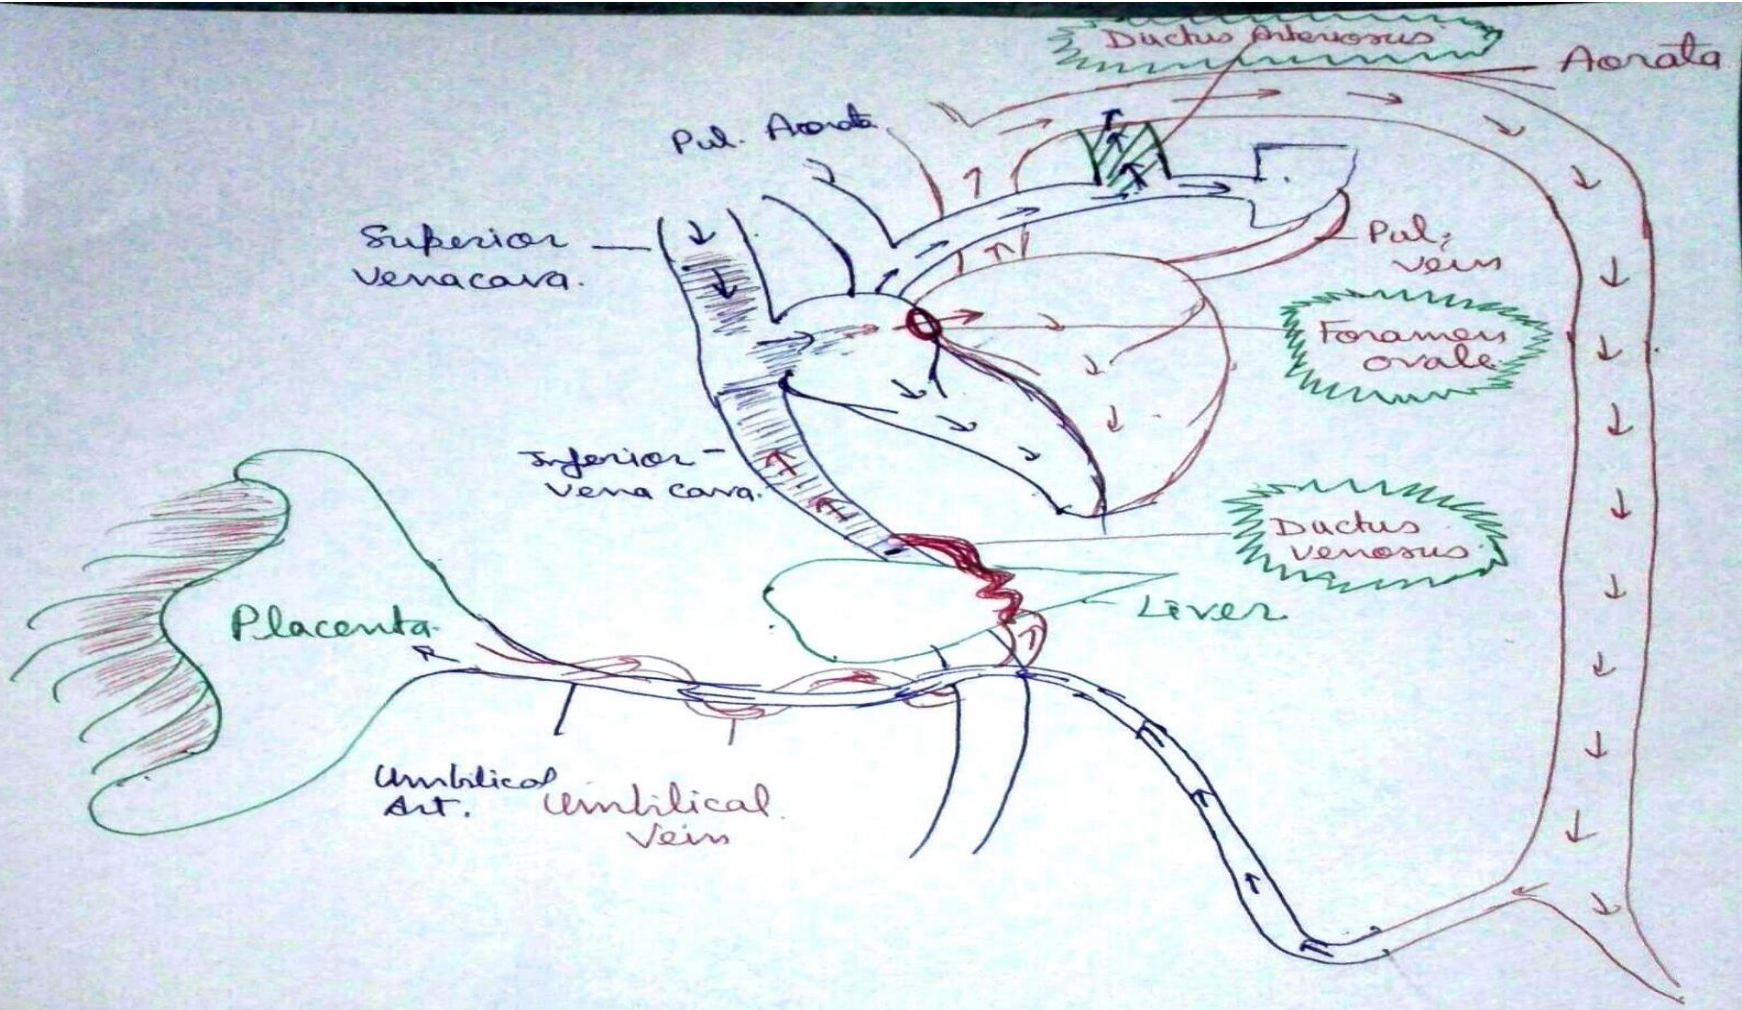 Ductus Arteriosus
Aorata
Pul. Aorata
Superior
Venacava.
Pul.
vein
Foramen
ovale
Inferior
Vena Cava.
Ductus
venosus
Liver
Placenta
Umbilical
Art.
Umbilical
Vein